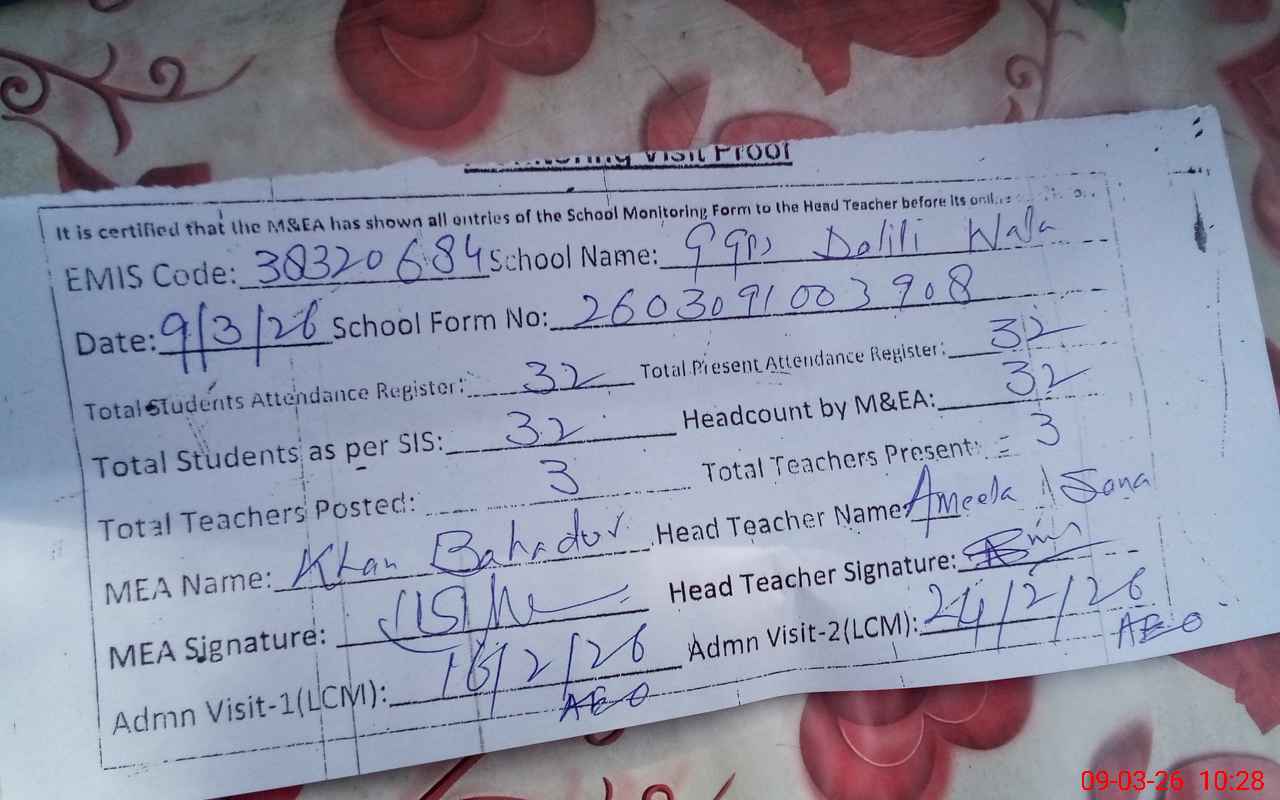 Monitoring Visit Proof
It is certified that the M&EA has shown all entries of the School Monitoring Form to the Head Teacher before its
EMIS Code: 38320684 School Name: GGPS Dalili Wala
Date: 9/3/26 School Form No: 260309100 3908
Total Students Attendance Register: 32 Total Present Attendance Register: 32
Total Students as per SIS: 32 Headcount by M&EA: 32
Total Teachers Posted: 3 Total Teachers Present: = 3
MEA Name: Khan Bahadur Head Teacher Name Ameela Sana
MEA Signature: Head Teacher Signature:
Admn Visit-1(LCM): 16/2/26 Admn Visit-2(LCM): 24/2/26
AEO AEO
09-03-26 10:28